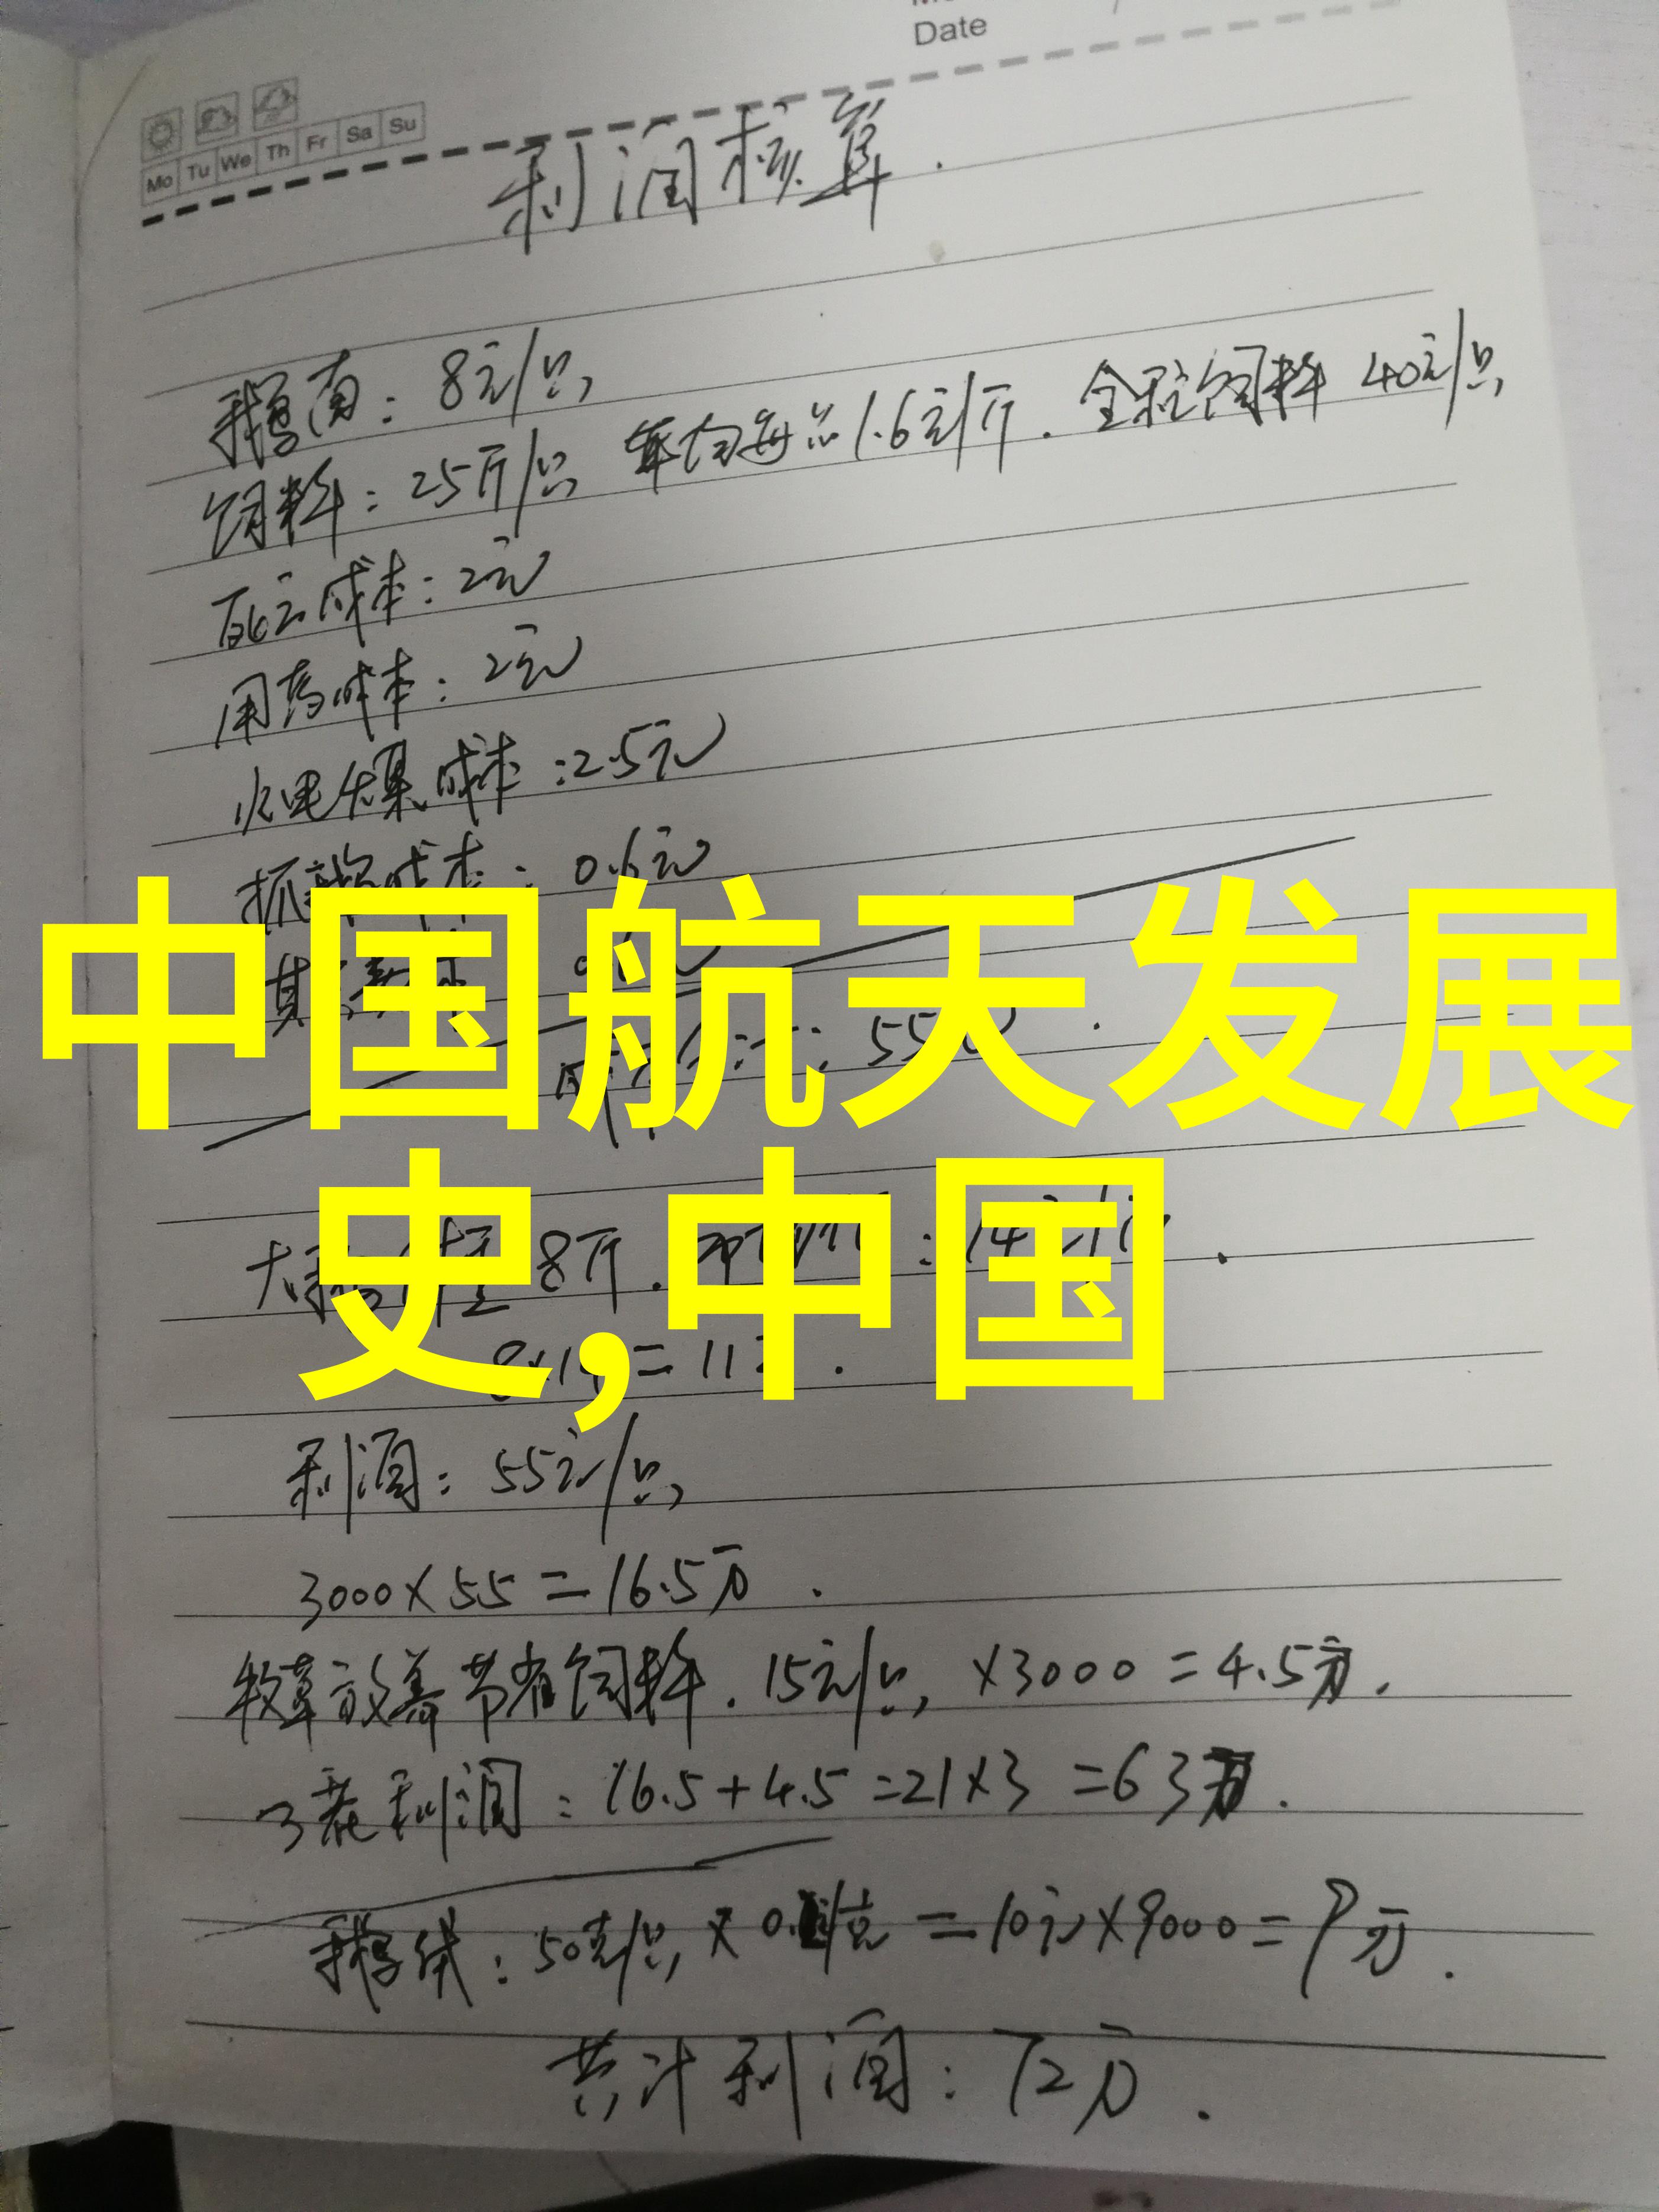 Date
Mo Tu We Th Fr Sa Su
利润核算.
鹅苗: 8元/只
饲料: 25斤/只 平均每斤1.6元/斤. 全程饲料 40元/只
死亡成本: 2元
用药成本: 2元
水电煤成本: 2.5元
抓鹅成本: 0.6元
中国航天发展
史,中国
8斤.
利润: 55元/只
3000×55=16.5万.
牧草放养节省饲料. 15元/只 ×3000=4.5万.
3批利润: 16.5+4.5=21×3=63万.
鹅绒: 50克/只 × =10元×9000=9万.
共计利润: 72万.